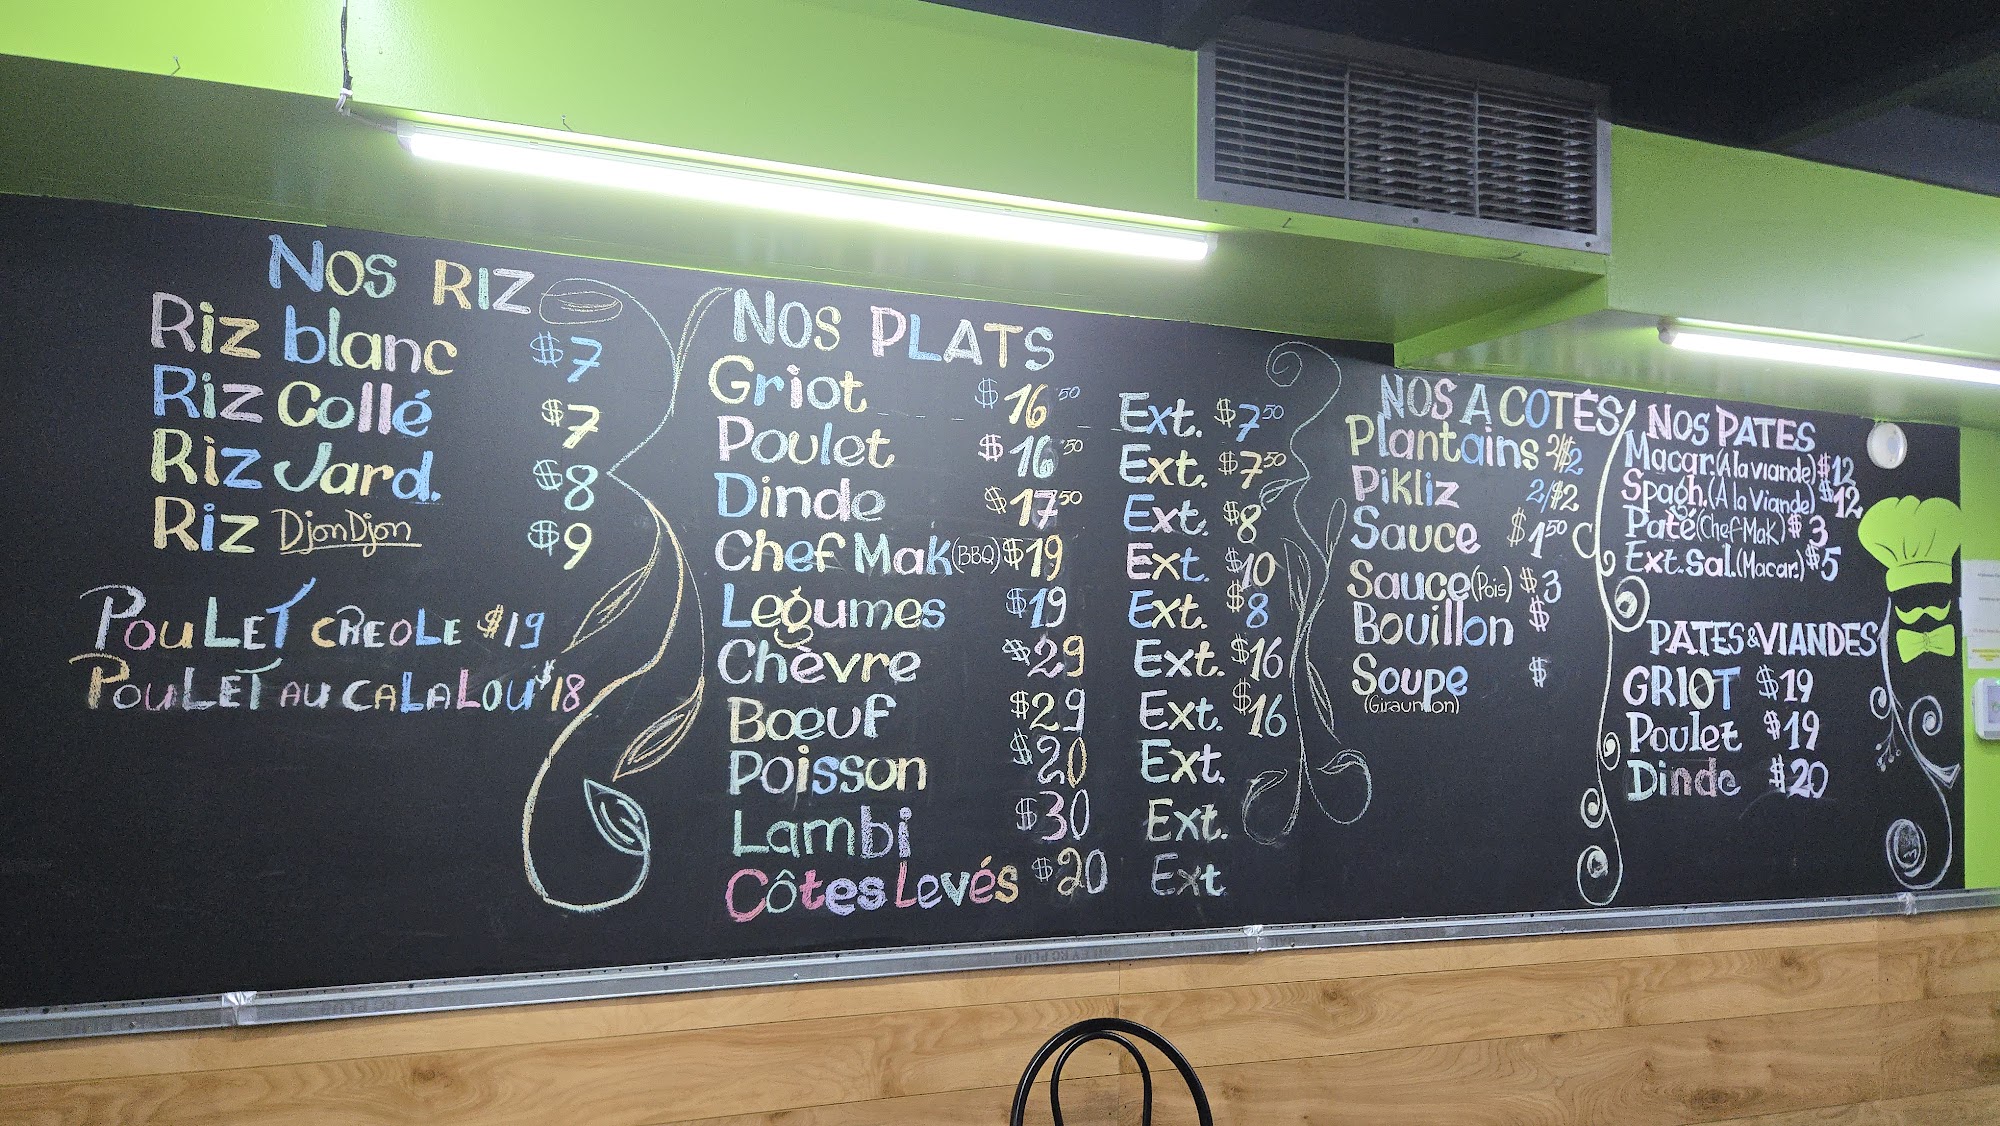 NOS RIZ
Riz blanc $7
Riz Collé $7
Riz Jard. $8
Riz DjonDjon $9
POULET CREOLE $19
POULET AU CALALOU $18
NOS PLATS
Griot $16.50 Ext. $7.50
Poulet $16.50 Ext. $7.50
Dinde $17.50 Ext. $8
Chef Mak (BBQ) $19 Ext. $10
Legumes $19 Ext. $8
Chèvre $29 Ext. $16
Bœuf $29 Ext. $16
Poisson $20 Ext.
Lambi $30 Ext.
Côtes Levés $20 Ext
NOS A COTÉS
Plantains 2/$2
Pikliz 2/$2
Sauce $1.50 C
Sauce (Pois) $3
Bouillon $
Soupe $
(Giraumon)
NOS PATES
Macar. (A la viande) $12
Spagh. (A la Viande) $12
Paté (Chef Mak) $3
Ext. Sal. (Macar.) $5
PATES & VIANDES
GRIOT $19
Poulet $19
Dinde $20